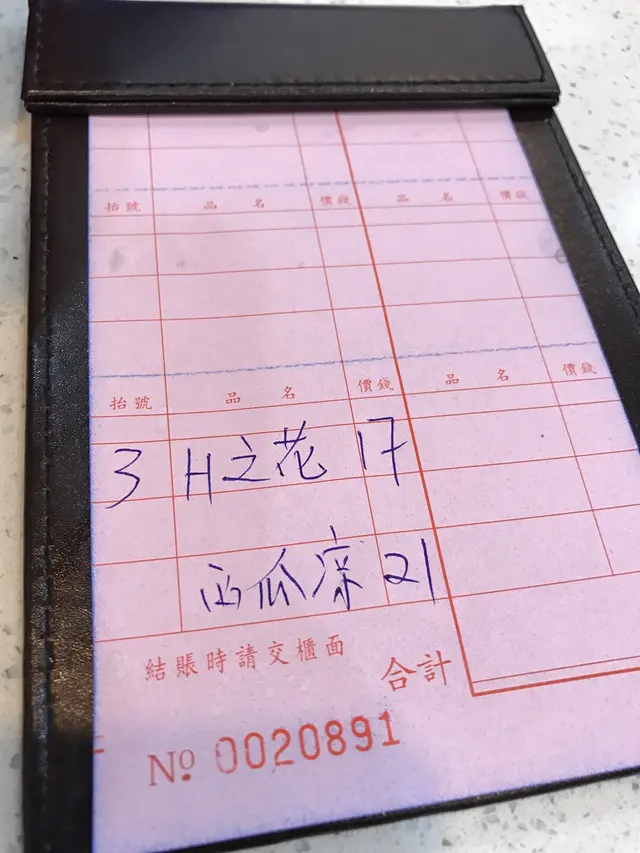 抬號 品名 價錢 品名 價錢
抬號 品名 價錢 品名 價錢
3 H之花 17
西瓜凉 21
結賬時請交櫃面 合計
No 0020891